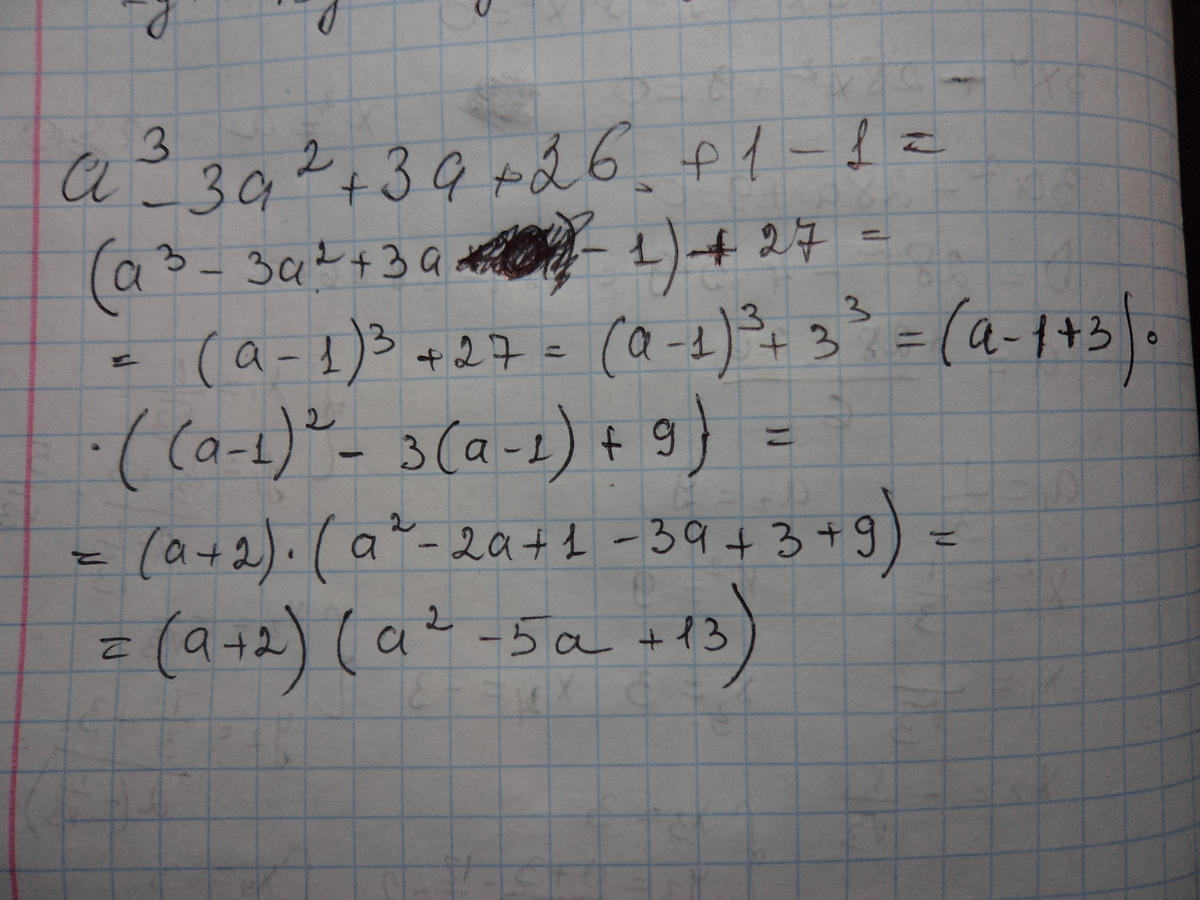 a³ - 3a² + 3a + 26. + 1 - 1 =
(a³ - 3a² + 3a - 1) + 27 =
= (a - 1)³ + 27 = (a - 1)³ + 3³ = (a - 1 + 3) ·
· ((a - 1)² - 3(a - 1) + 9) =
= (a + 2) · (a² - 2a + 1 - 3a + 3 + 9) =
= (a + 2) (a² - 5a + 13)